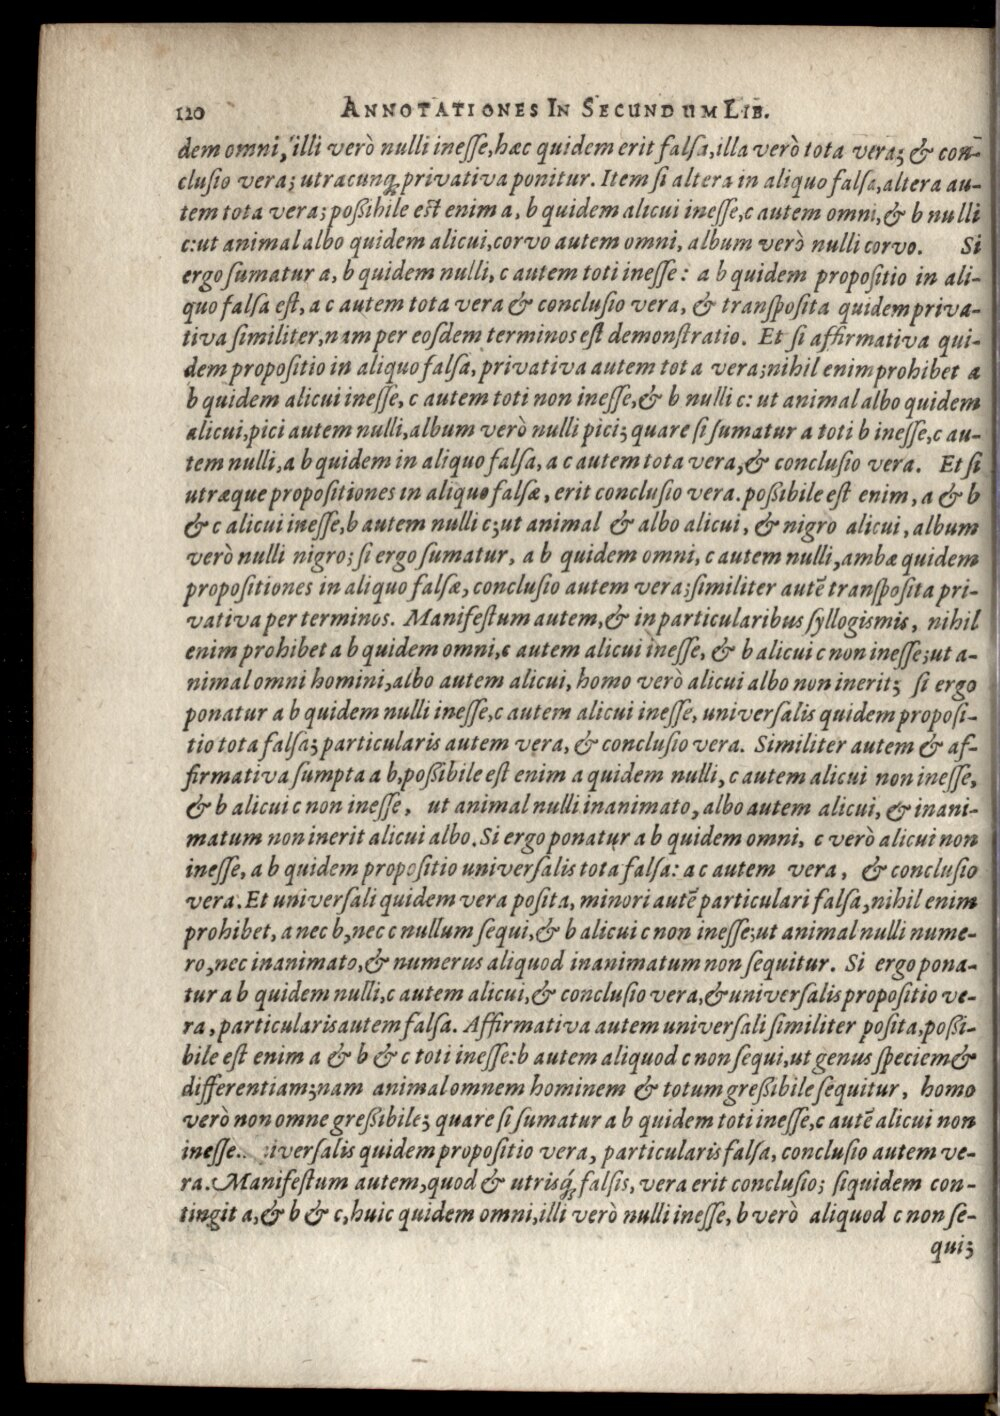 120 ANNOTATIONES IN SECUNDUM LIB.
dem omni, illi verò nulli inesse, hæc quidem erit falsa, illa verò tota vera; & con-
clusio vera; utracunq, privativa ponitur. Item si altera in aliquo falsa, altera au-
tem tota vera; poßibile est enim a, b quidem alicui inesse, c autem omni, & b nulli
c: ut animal albo quidem alicui, corvo autem omni, album verò nulli corvo. Si
ergo sumatur a, b quidem nulli, c autem toti inesse: a b quidem propositio in ali-
quo falsa est, a c autem tota vera & conclusio vera, & transposita quidem priva-
tiva similiter, nam per eosdem terminos est demonstratio. Et si affirmativa qui-
dem propositio in aliquo falsa, privativa autem tota vera; nihil enim prohibet a
b quidem alicui inesse, c autem toti non inesse, & b nulli c: ut animal albo quidem
alicui, pici autem nulli, album verò nulli pici; quare si sumatur a toti b inesse, c au-
tem nulli, a b quidem in aliquo falsa, a c autem tota vera, & conclusio vera. Et si
utræque propositiones in aliquo falsæ, erit conclusio vera. poßibile est enim, a & b
& c alicui inesse, b autem nulli c; ut animal & albo alicui, & nigro alicui, album
verò nulli nigro; si ergo sumatur, a b quidem omni, c autem nulli, ambæ quidem
propositiones in aliquo falsæ, conclusio autem vera; similiter autē transposita pri-
vativa per terminos. Manifestum autem, & in particularibus syllogismis, nihil
enim prohibet a b quidem omni, c autem alicui inesse, & b alicui c non inesse; ut a-
nimal omni homini, albo autem alicui, homo verò alicui albo non inerit; si ergo
ponatur a b quidem nulli inesse, c autem alicui inesse, universalis quidem proposi-
tio tota falsa; particularis autem vera, & conclusio vera. Similiter autem & af-
firmativa sumpta a b, poßibile est enim a quidem nulli, c autem alicui non inesse,
& b alicui c non inesse, ut animal nulli inanimato, albo autem alicui, & inani-
matum non inerit alicui albo. Si ergo ponatur a b quidem omni, c verò alicui non
inesse, a b quidem propositio universalis tota falsa: a c autem vera, & conclusio
vera. Et universali quidem vera posita, minori autē particulari falsa, nihil enim
prohibet, a nec b, nec c nullum sequi, & b alicui c non inesse; ut animal nulli nume-
ro, nec inanimato, & numerus aliquod inanimatum non sequitur. Si ergo pona-
tur a b quidem nulli, c autem alicui, & conclusio vera, & universalis propositio ve-
ra, particularis autem falsa. Affirmativa autem universali similiter posita, poßi-
bile est enim a & b & c toti inesse: b autem aliquod c non sequi, ut genus speciem &
differentiam; nam animal omnem hominem & totum greßibile sequitur, homo
verò non omne greßibile; quare si sumatur a b quidem toti inesse, c autē alicui non
inesse.. iversalis quidem propositio vera, particularis falsa, conclusio autem ve-
ra. Manifestum autem, quod & utrisq́; falsis, vera erit conclusio; siquidem con-
tingit a, & b & c, huic quidem omni, illi verò nulli inesse, b verò aliquod c non se-
qui;